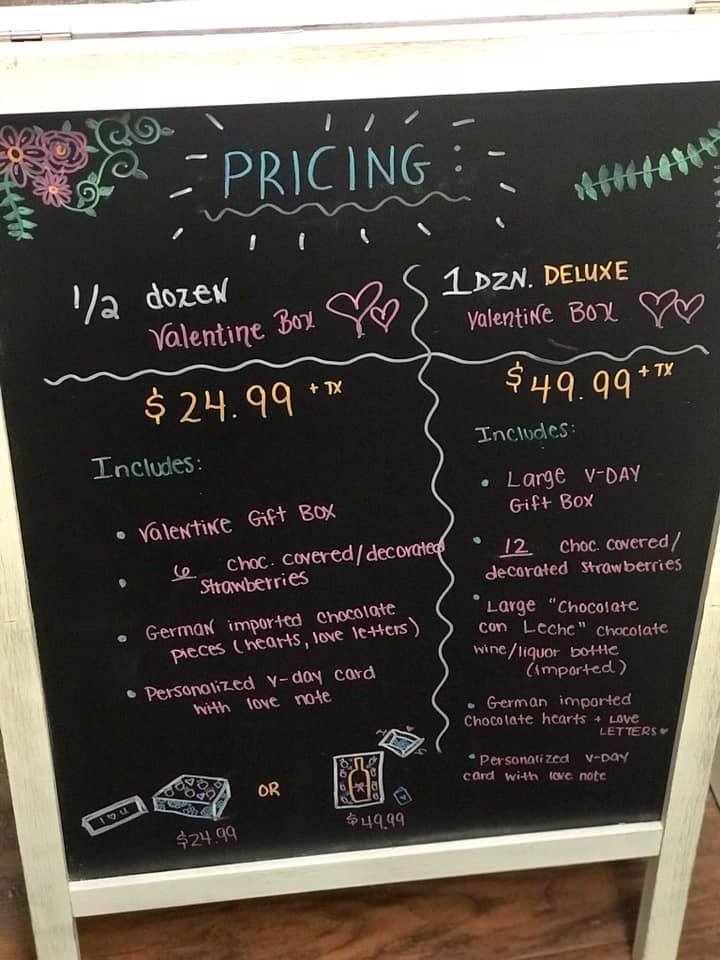 PRICING:
1/2 dozen
Valentine Box
$24.99 + TX
Includes:
• Valentine Gift Box
• 6 choc. covered/decorated
strawberries
• German imported chocolate
pieces (hearts, love letters)
• Personalized v-day card
with love note
1 DZN. DELUXE
Valentine Box
$49.99 + TX
Includes:
• Large V-DAY
Gift Box
• 12 choc. covered/
decorated strawberries
• Large "Chocolate
con Leche" chocolate
wine/liquor bottle
(imported)
• German imported
chocolate hearts + LOVE
LETTERS ♥
• Personalized V-DAY
card with love note
I ♥ U
$24.99
OR
$49.99